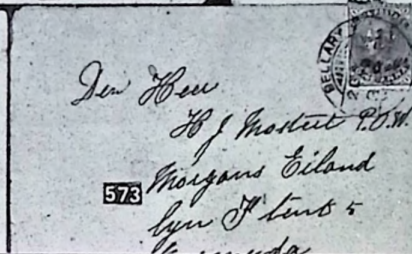 BELLARY
Den Heer
H J Mostert P.O.W.
573
Morgans Eiland
Lyn F tent 5